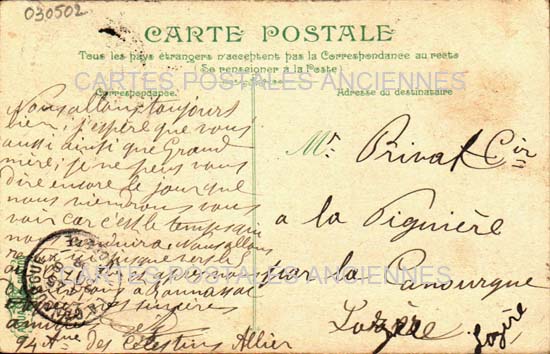 030502
CARTE POSTALE
Tous les pays étrangers n'acceptent pas la Correspondance au recto
(Se renseigner à la Poste)
CARTES POSTALES ANCIENNES
Correspondance.
Adresse du destinataire
Nous allons toujours
bien, j'espère que vous
aussi ainsi que Grand
mère, je ne peux vous
dire encore le jour que
nous viendrons vous
voir car c'est le temps qui
conduira Nous allons
sincères
amitiés
94 Ave des Célestins Allier
Mr Privat
a la Pignière
par la Canourgue
Lozère
Lozère
CARTES POSTALES ANCIENNES